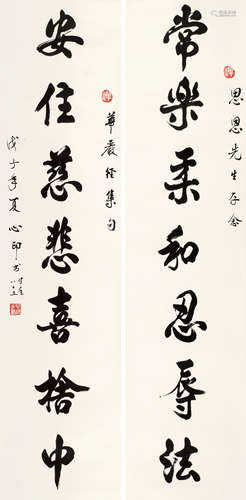 思恩先生存念
常樂柔和忍辱法
華嚴經集句
安住慈悲喜捨中
戊子年夏心印書